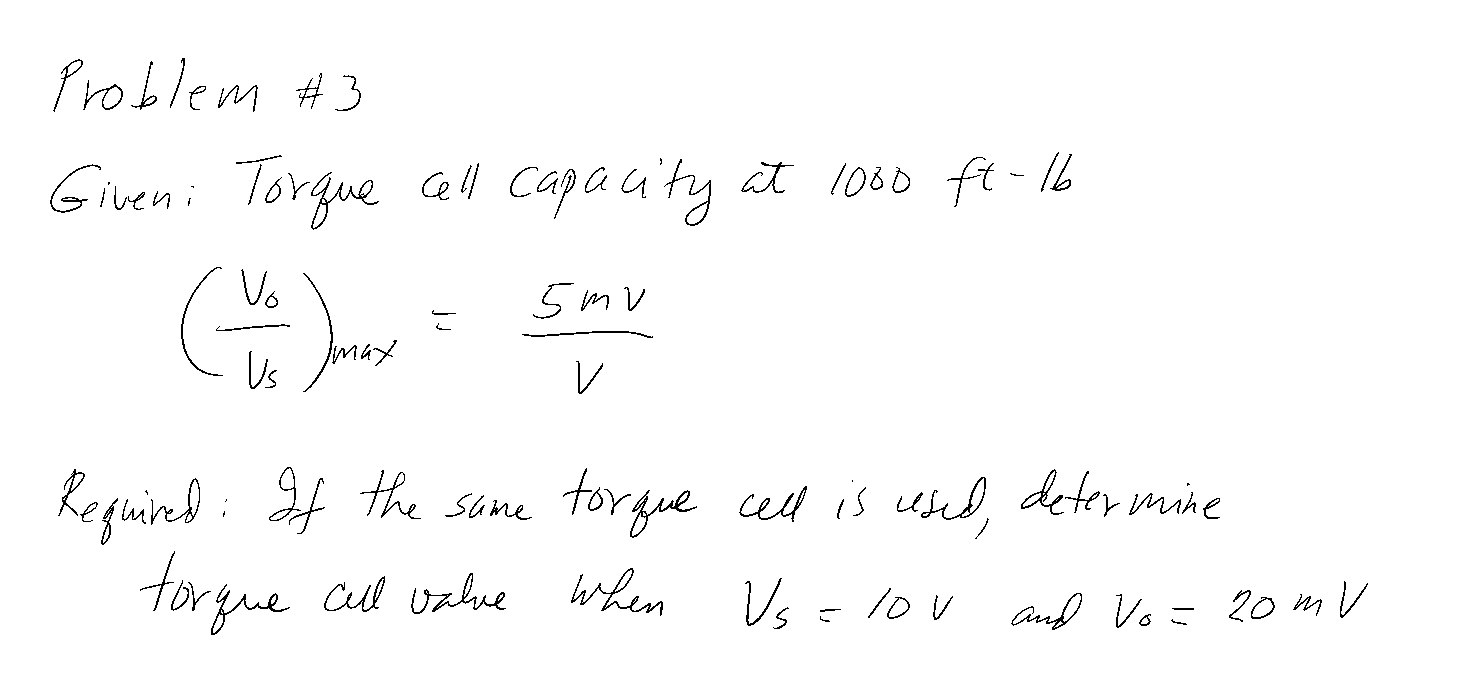 Problem #3
Given: Torque cell capacity at 1000 ft-lb
(Vo/Vs)max = 5mV/V
Required: If the same torque cell is used, determine
torque cell value when Vs = 10 V and Vo = 20 mV